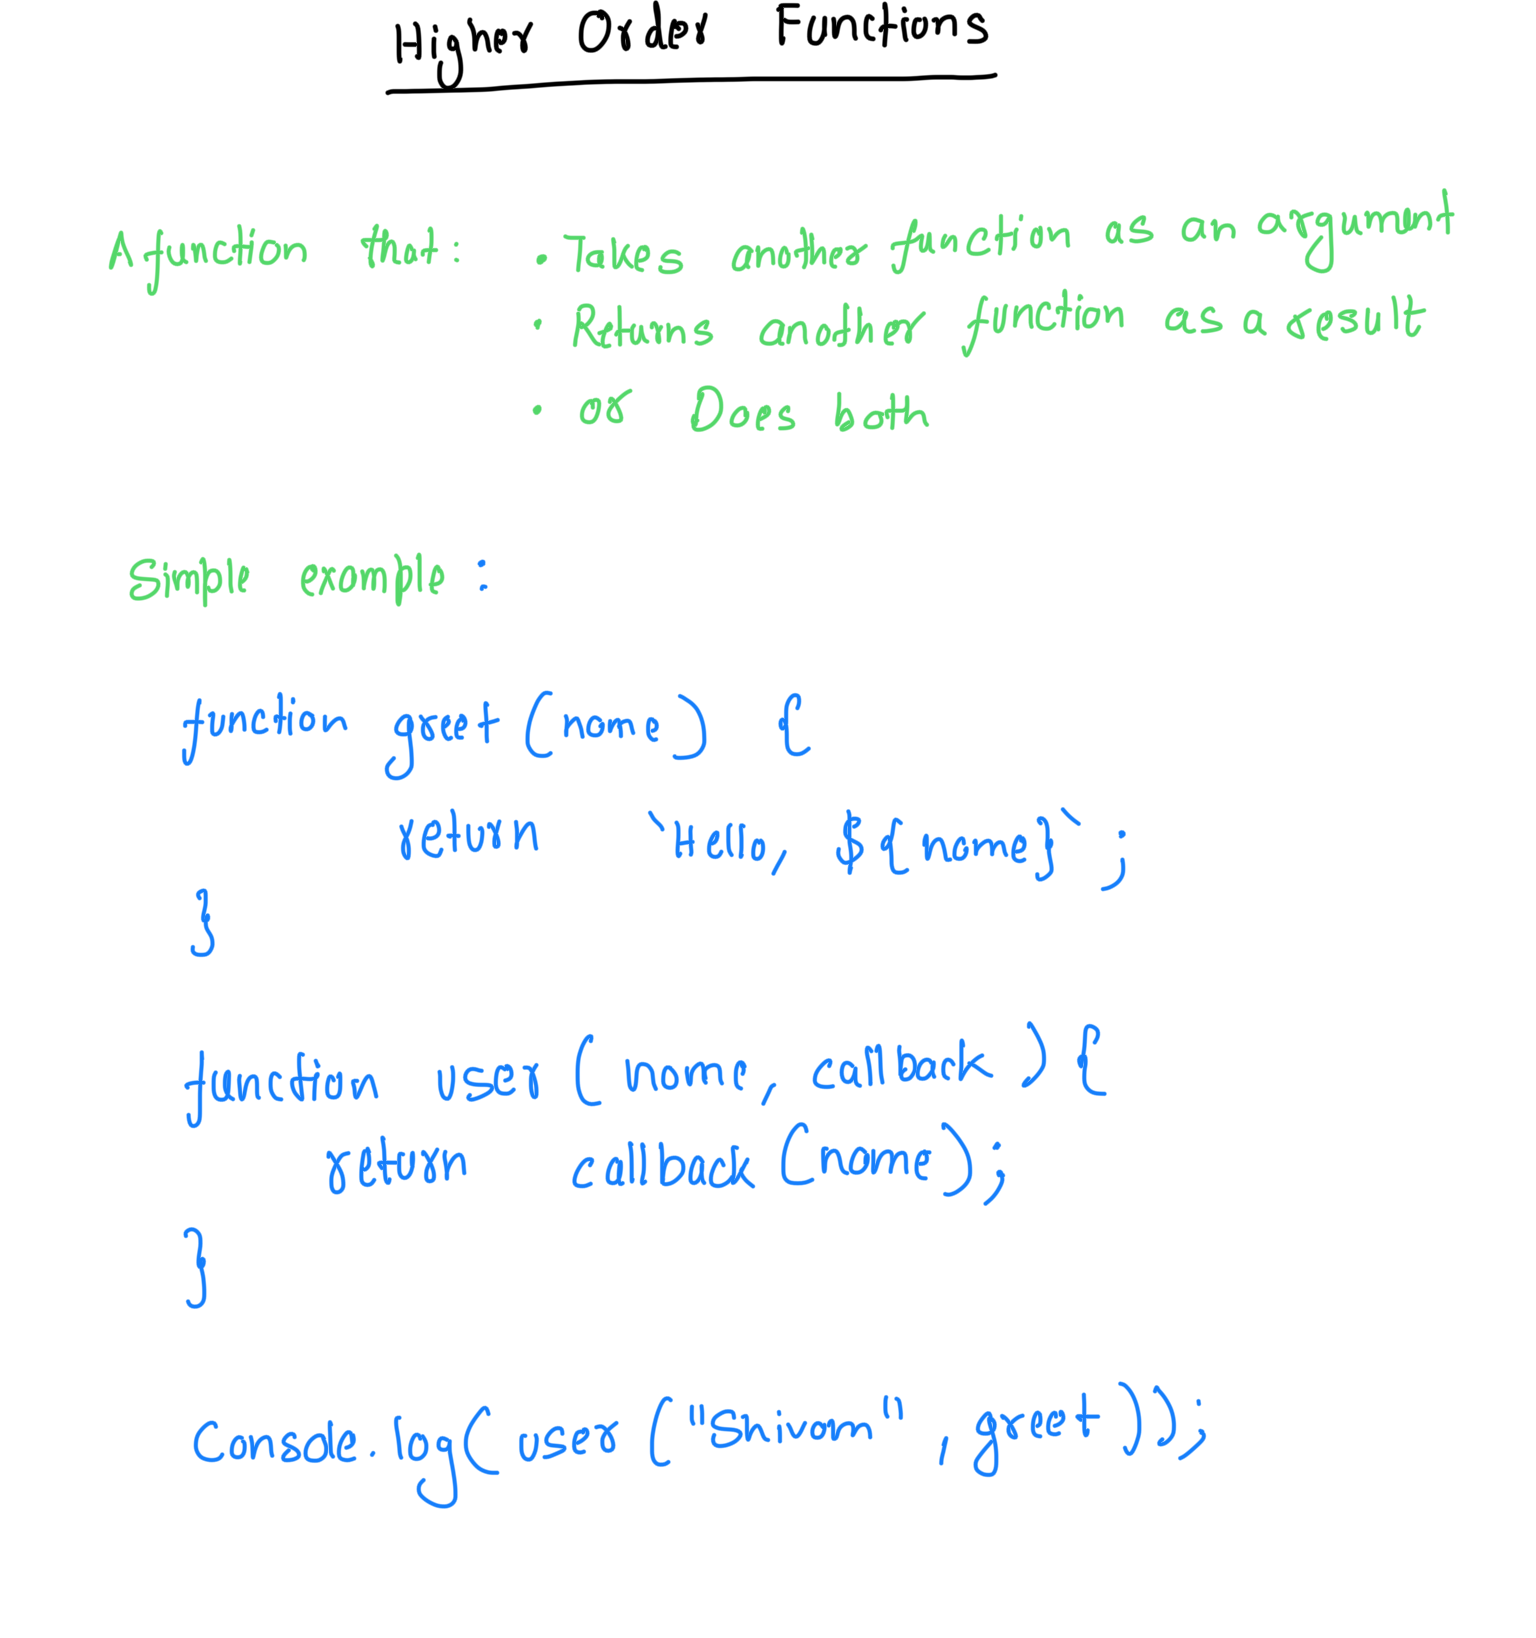 Higher Order Functions
A function that: • Takes another function as an argument
• Returns another function as a result
• or Does both
Simple example :
function greet (name) {
return `Hello, ${name}` ;
}
function user ( name, callback ) {
return callback (name);
}
Console.log( user ("Shivam" , greet ));